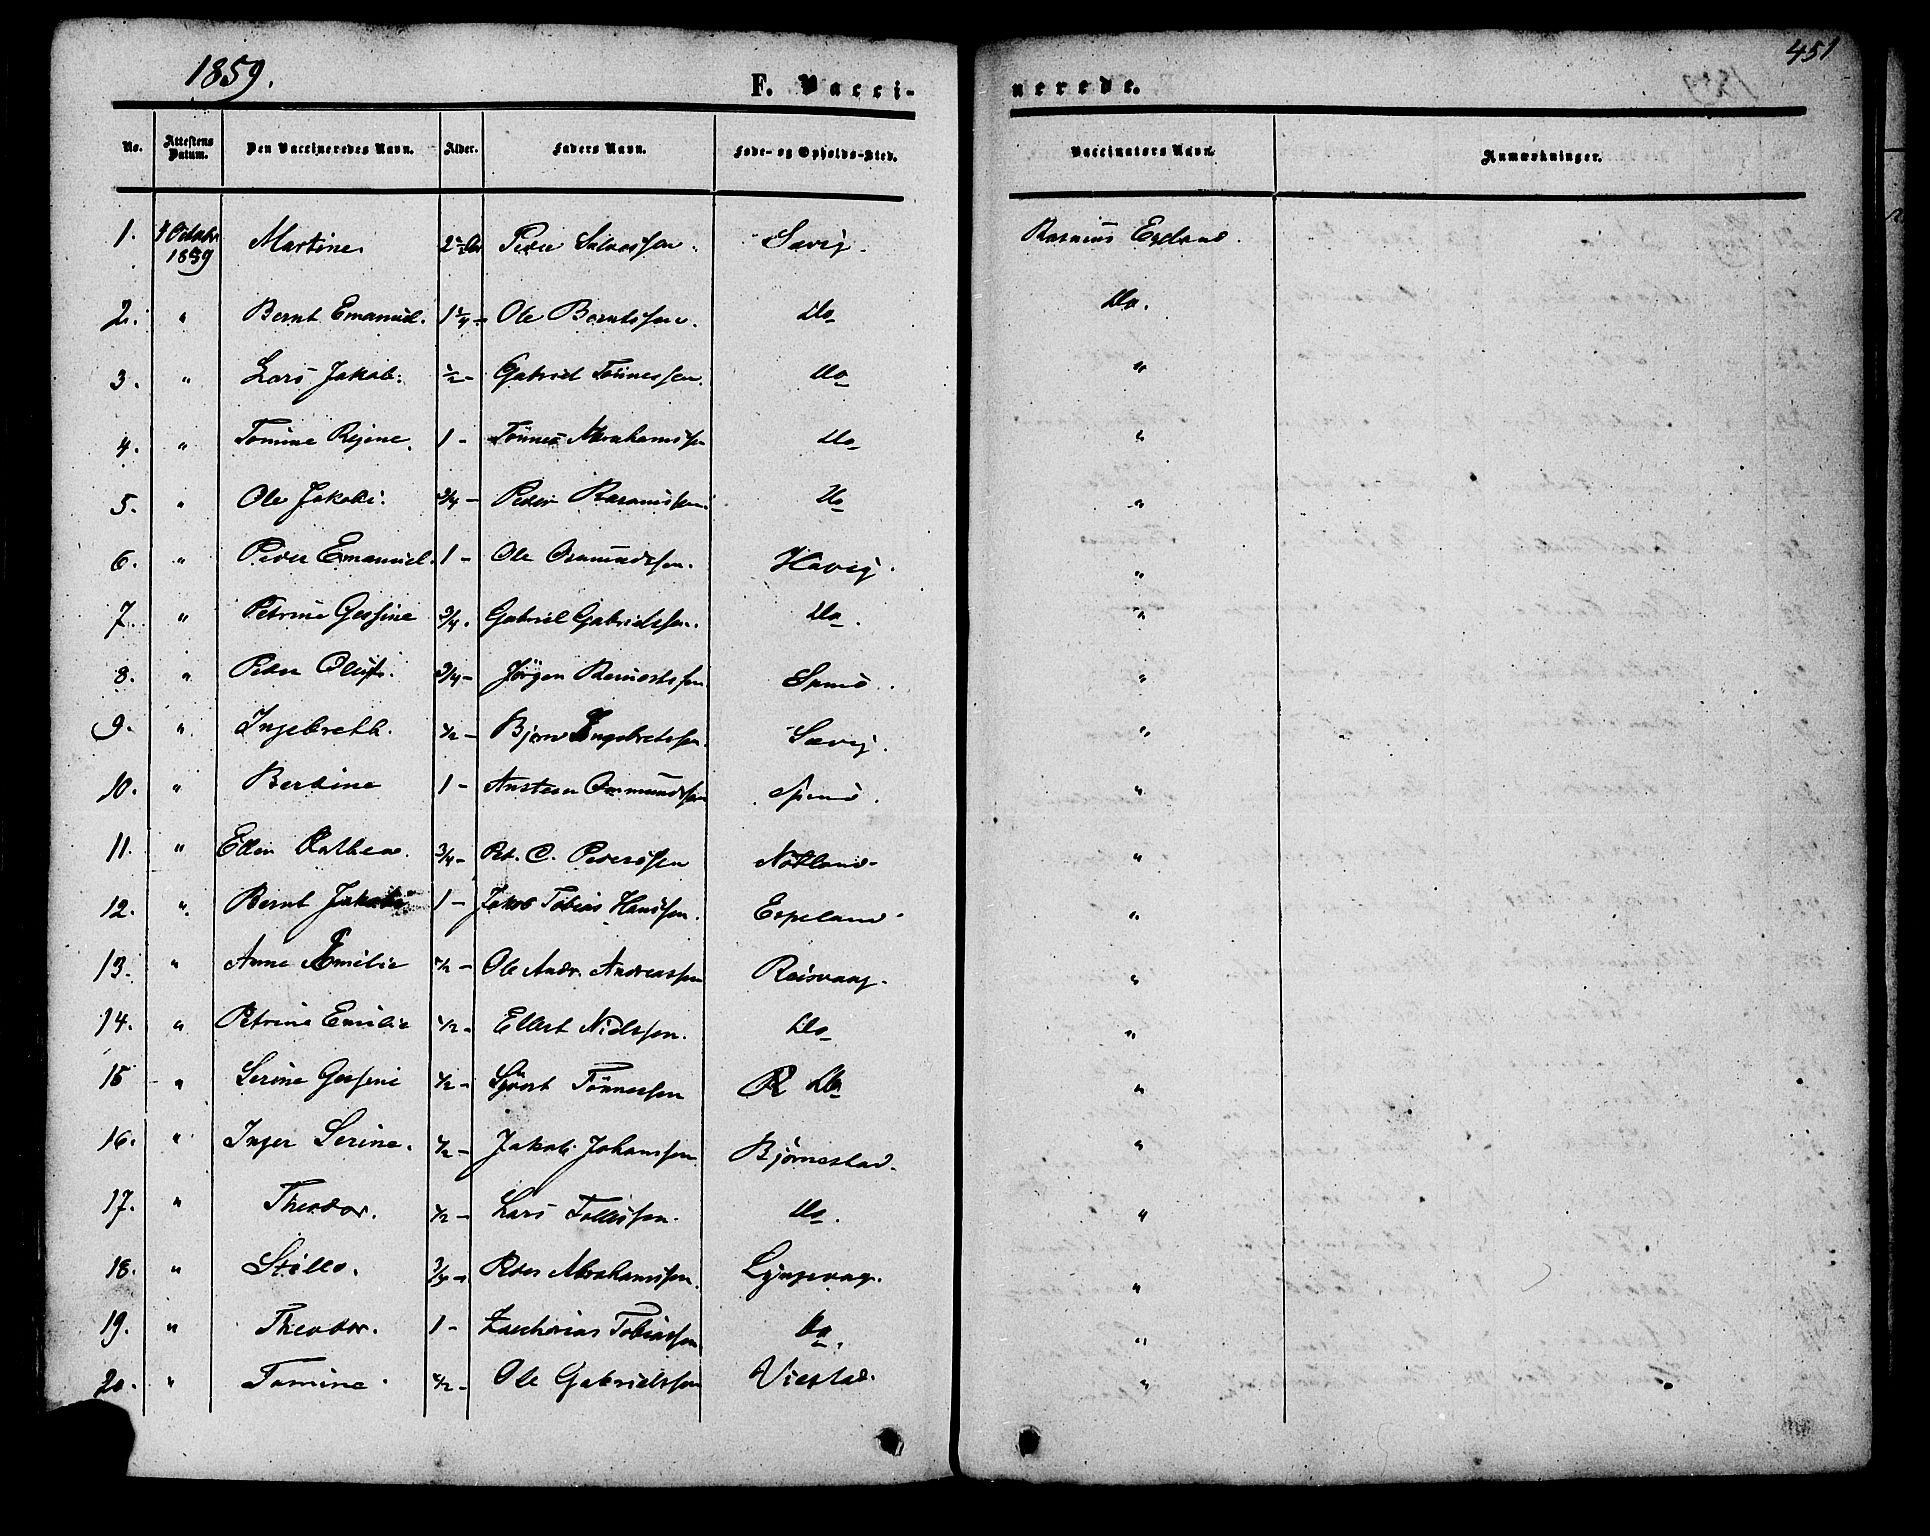 1859.
F. Vacci-
nerede.
451
No. Attestens Datum. Den Vaccineredes Navn. Alder. Faders Navn. Føde- og Opholds-Sted. Vaccinators Navn. Anmærkninger.
1. 1859 Martine. Peder Salvessen. Sævig.
2. " Bernt Emanuel. 1 1/4 - Ole Berntssen. Do Do.
3. " Lars Jakob. 1/2 - Gabriel Tönnessen. Do "
4. " Tomine Regine. 1 - Tönnes Abrahamssen Do "
5. " Ole Jakob. 3/4 - Peder Rasmussen. Do "
6. " Peder Emanuel. 1 - Ole Osmundssen. Havig. "
7. " Petrine Gessine 3/4. Gabriel Gabrielssen. Do. "
8. " Peder Oluf. 3/4 - Jörgen Reinertssen. "
9. " Ingebreth. 1/2 - Bjorn Ingebretssen. Sævig. "
10. " Bertine 1 - Austeen Osmundssen "
11. " Ellen Cathea. 3/4 - Ped. C. Pederssen Nötland. "
12. " Bernt Jakob 1 - Jakob Tobias Hanssen. Espeland. "
13. " Anne Emilie 1/2 - Ole Andr. Andreassen Reisvaag. "
14. " Petrine Emilie 1/2 - Ellert Nielssen. Do "
15 " Serine Gessine 1/2 - Sjövert Tönnessen R Do "
16. " Inger Serine. 1/2 - Jakob Johanssen Bjørnestad. "
17. " Theodor. 1/2 - Lars Tollissen. Do. "
18. " 3/4 - Peder Abrahamssen. Lyngsvag. "
19. " Theodor. 1 - Zacharias Tobiassen Do. "
20. " Tomine. 1/2 - Ole Gabrielssen Viestad. "